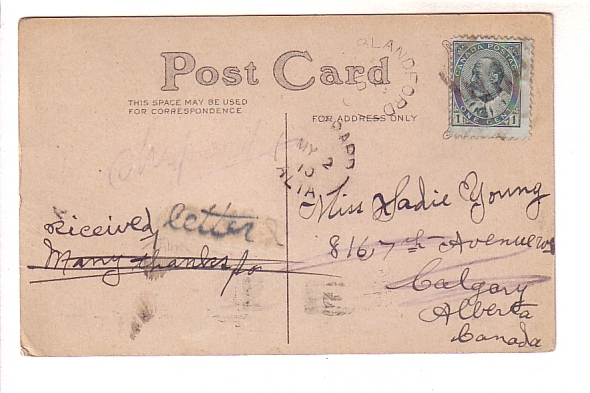 Post Card
THIS SPACE MAY BE USED
FOR CORRESPONDENCE
FOR ADDRESS ONLY
CANADA POSTAGE
1 ONE CENT 1
BLANDFORD
MY 2
10
ALTA
Miss Sadie Young
816 7th Avenue W
Calgary
Alberta
Canada
Received letter
Many thanks for